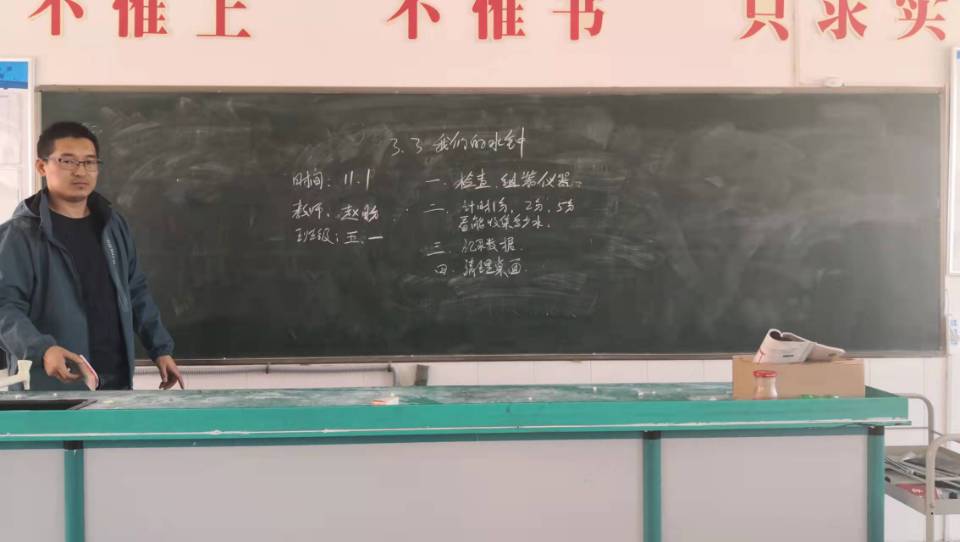 不惟上 不惟书 只求实
3.3 我们的水钟
时间：11.1
教师：赵
班级：五、一
一、检查、组装仪器。
二、计时1分，2分，5分
看能收集多少水。
三、记录数据.
四、清理桌面.